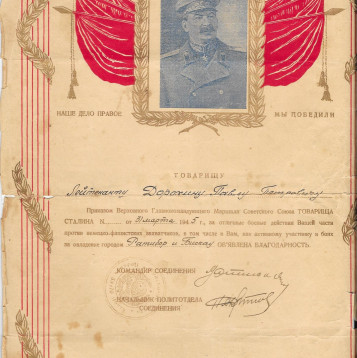 НАШЕ ДЕЛО ПРАВОЕ
МЫ ПОБЕДИЛИ
ТОВАРИЩУ
Лейтенанту Дорохину Павлу Петровичу
Приказом Верховного Главнокомандующего Маршала Советского Союза ТОВАРИЩА
СТАЛИНА №......... от 31 марта 1945 г., за отличные боевые действия Нашей части
против немецко-фашистских захватчиков, в том числе и Вам, как активному участнику в боях
за овладение городом Ратибор и Бискау ОБЪЯВЛЕНА БЛАГОДАРНОСТЬ.
КОМАНДИР СОЕДИНЕНИЯ
НАЧАЛЬНИК ПОЛИТОТДЕЛА
СОЕДИНЕНИЯ